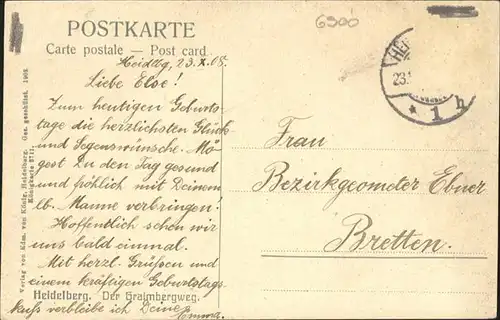 6900
POSTKARTE
Carte postale — Post card
Heidlbg, 23.X.08.
Liebe Else!
Zum heutigen Geburts-
tage die herzlichsten Glück
und Segenswünsche. Mö-
gest Du den Tag gesund
und fröhlich mit Deinem
lb. Manne verbringen!
Hoffentlich sehen wir
uns bald einmal.
Mit herzl. Grüßen und
einem kräftigen Geburtstags-
Heidelberg. Der Graimbergweg.
kuß verbleibe ich Deine
Emma.
Frau
Bezirkgeometer Ebner
Bretten.
Verlag von Edm. von König, Heidelberg. Ges. geschützt. 1908
Königkarte
HEI
23.
* 1 h